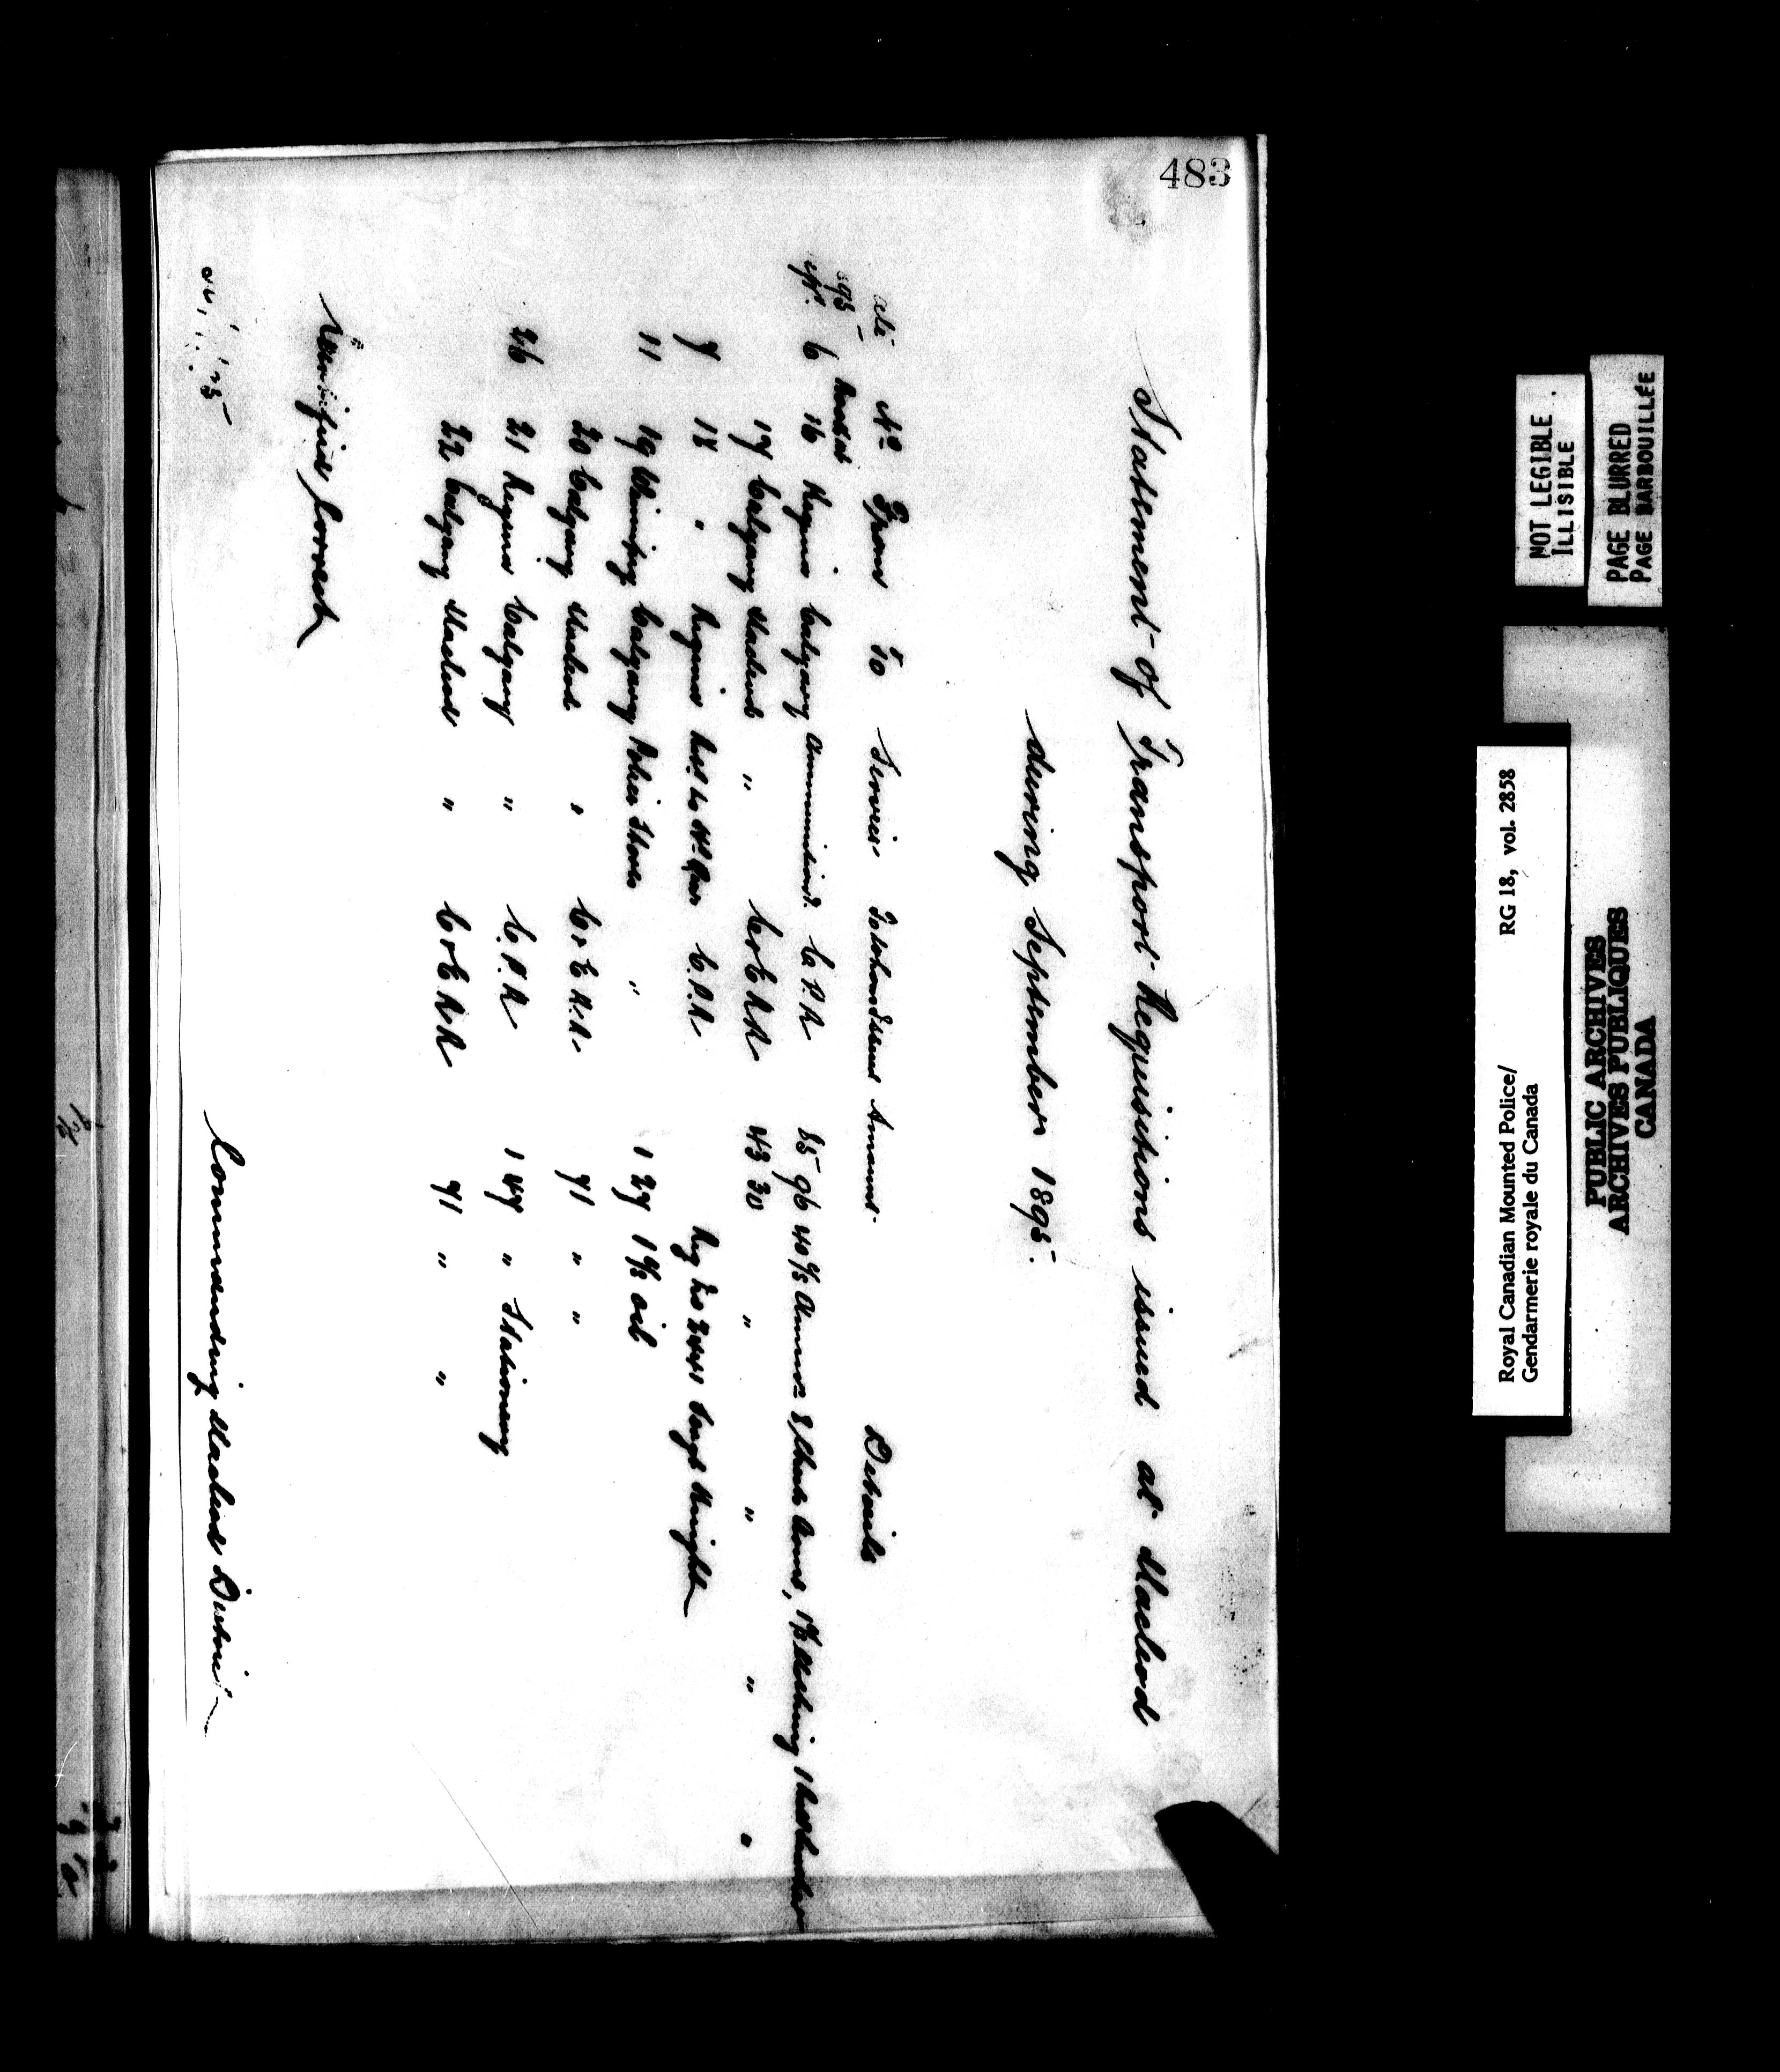 483
Statement of Transport Requisitions issued at Macleod
during September 1895.
No From To Service To whom Issued Amount Details
6 16 Regina Calgary Ammunition C.P.R 85 96 40 c/s Ammn 2 Chests Arms, 1 c/s
17 Calgary Macleod " C & E R R 43 30 " " " "
7 18 " Regina C.P.R Reg No Sergt Knight
11 19 Winnipeg Calgary Police Stores " 1 27 1 c/s oil
20 Calgary Macleod " C & E R.R. 71 " "
26 21 Regina Calgary " C.P.R 1 47 " Stationery
22 Calgary Macleod " C & E R R 71 " "
Certified Correct
Commanding Macleod District
NOT LEGIBLE
ILLISIBLE
PAGE BLURRED
PAGE BARBOUILLÉE
RG 18, vol. 2858
Royal Canadian Mounted Police/
Gendarmerie royale du Canada
PUBLIC ARCHIVES
ARCHIVES PUBLIQUES
CANADA